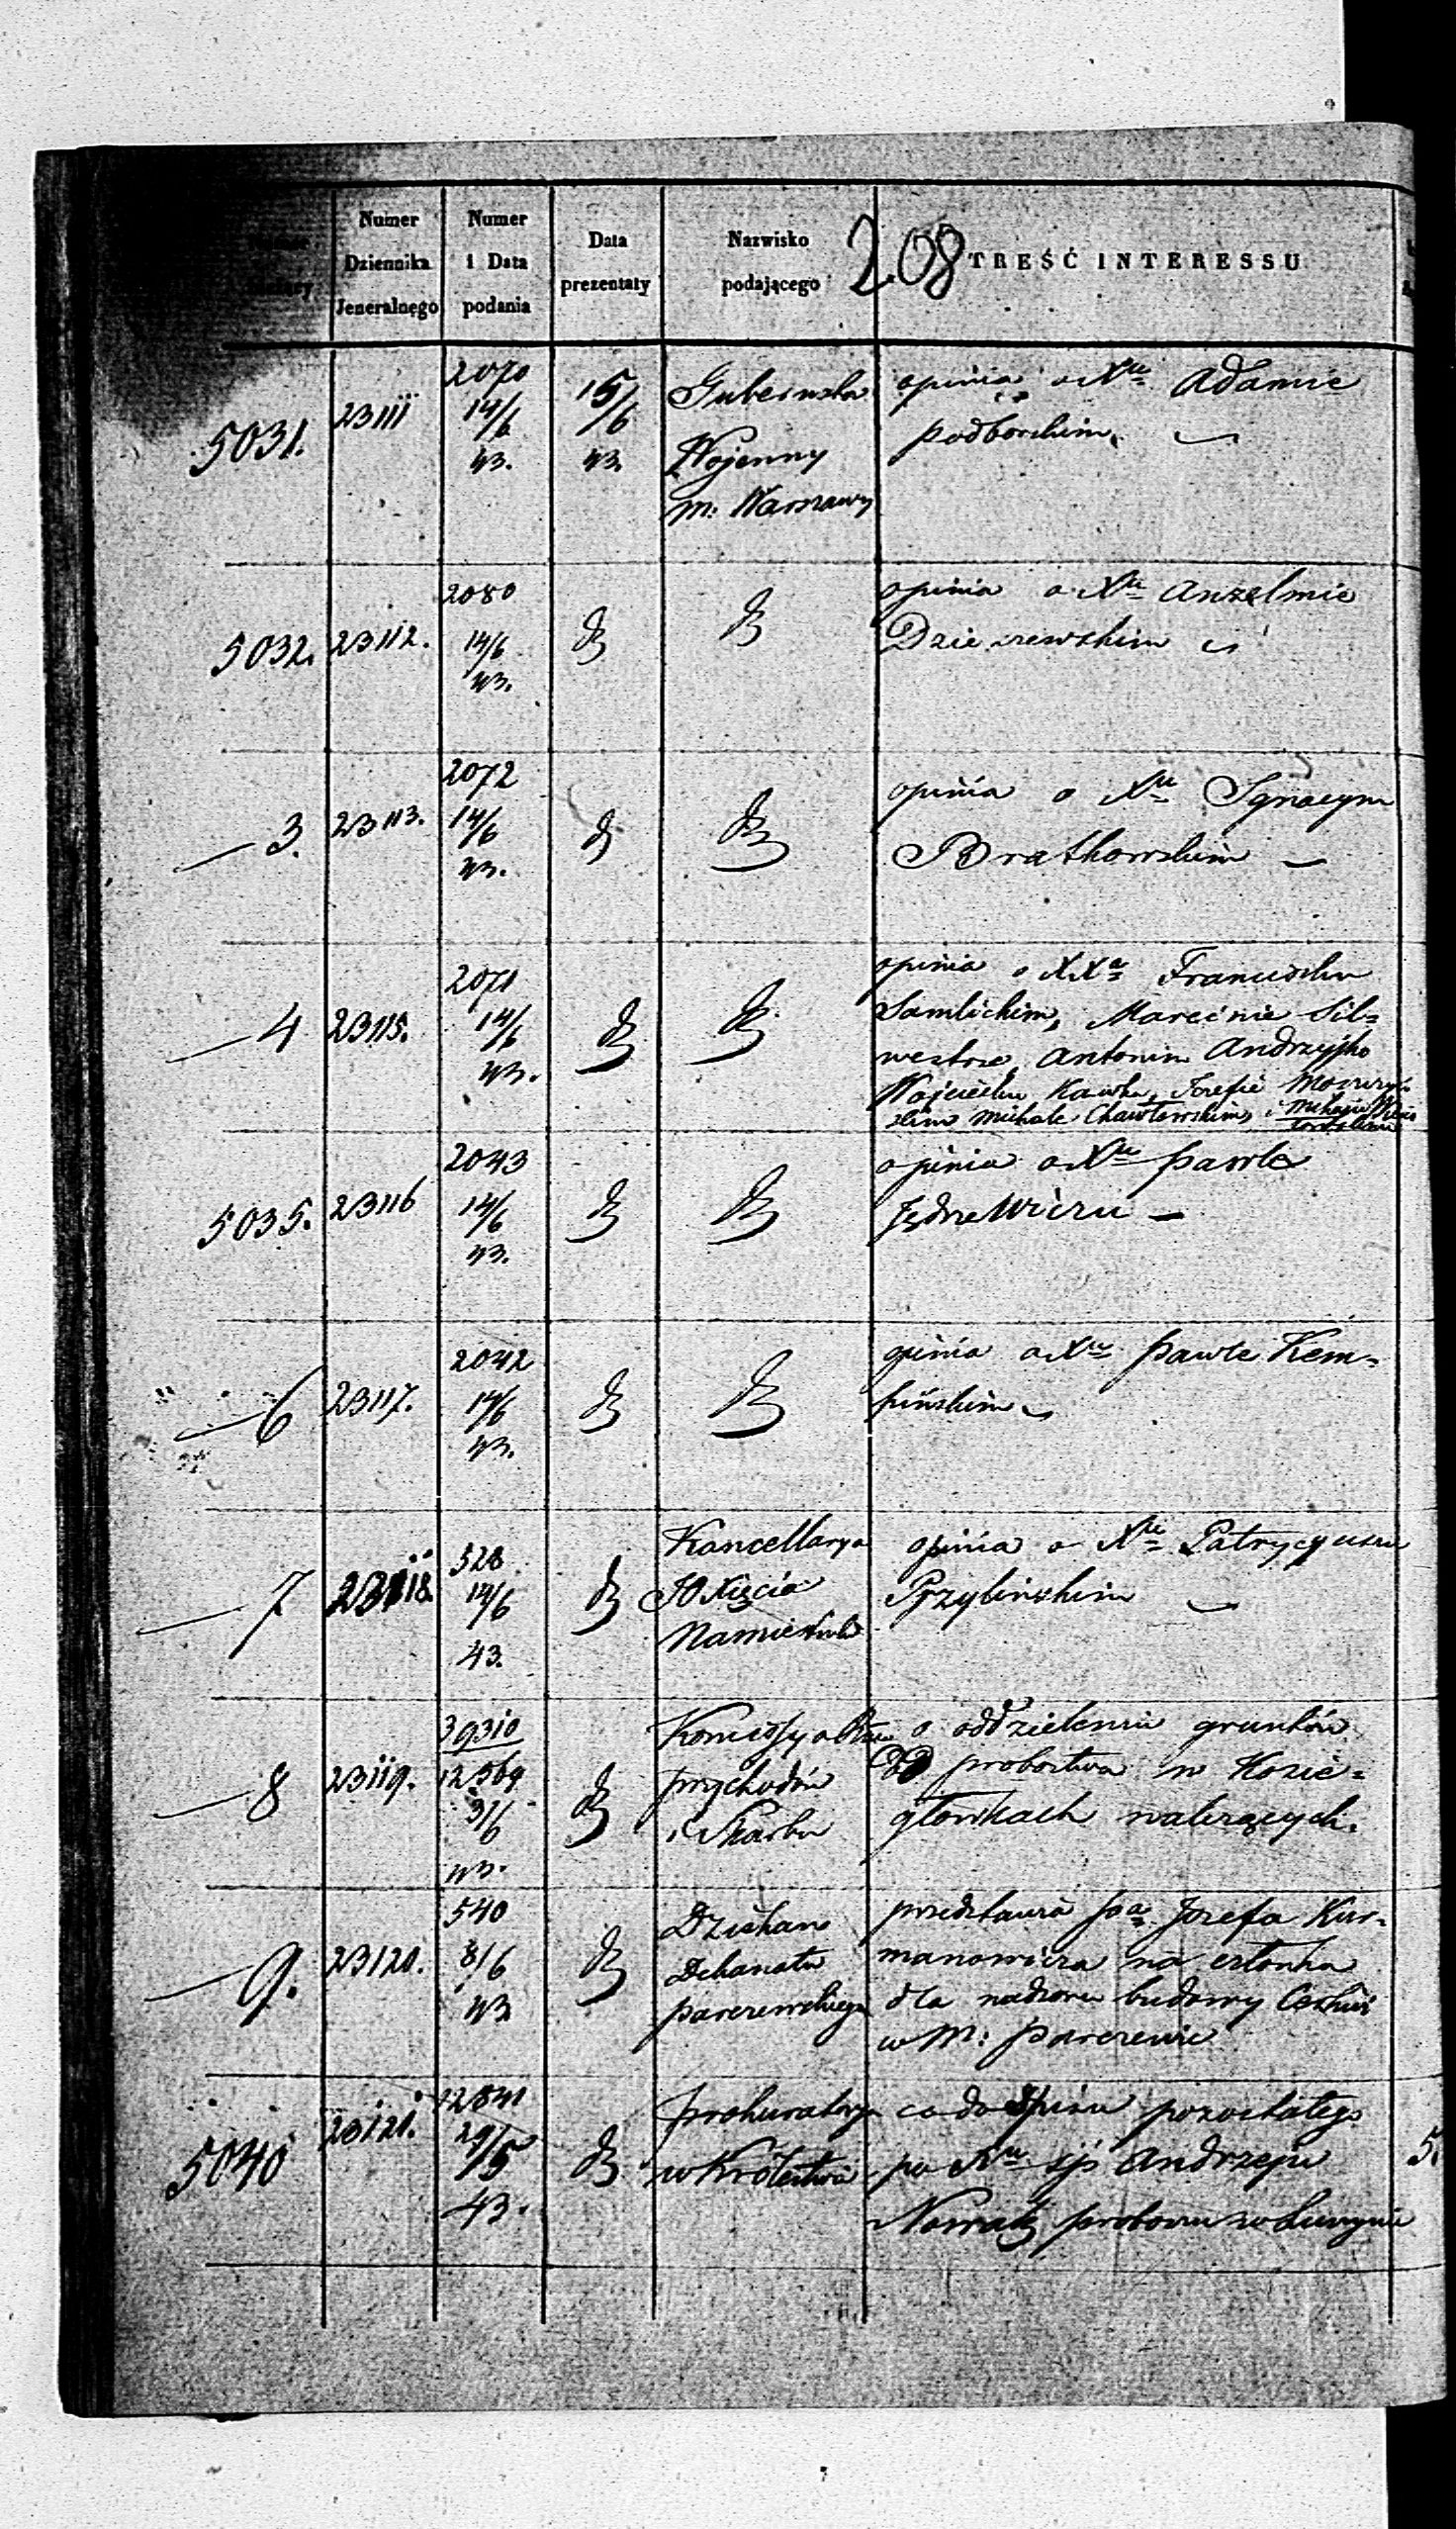 208
Numer Dziennika Jeneralnego
Numer i Data podania
Data prezentaty
Nazwisko podającego
TREŚĆ INTERESSU
5031. 23111 2070 14/6 43. 15/6 43.
Wojenny
m: Warszawy
opinia o Xu Adamie
podborskim
5032. 23112. 2080 14/6 43.
opinia o Xu Anzelmie
3. 23113. 2072 14/6 43.
opinia o Xu Ignacym
Bratkowskim
4 23115. 2071 14/6 43.
opinia o XXa Franciszku
Samlickim, Marcinie Sil=
westrze, Antonim Andrzyjko
Wojciechu Kawka, Jozefie
Michale Chawłowskim, i
5035. 23116 2043 14/6 43.
opinia o Xu pawle
JędrzeWiczu
6 23117. 2042 14/6 43.
opinia o Xu pawle Kem=
pińskim
7 23118. 528 14/6 43.
Kancellarya
JO Xięcia
Namiestnika
opinia o Xu Patrycyuszu
Przylińskim
8 23119. 39310 12569 3/6 43.
Komissya
przychodów
i Skarbu
o oddzieleniu gruntów
od probostwa w Kozie=
główkach należących.
9. 23120. 540 8/6 43
Dziekan
Dekanatu
parczewskiego
przedstawia Jozefa Kur=
manowicza na członka
dla nadzoru budowy Cerkwi
w M: parczewie
5040 23121. 12841 29/5 43.
prokuratorya
w Królestwie
co do Spisu pozostałego
po Xu ś.p. Andrzeju
Nowak, proboszczu w
5.